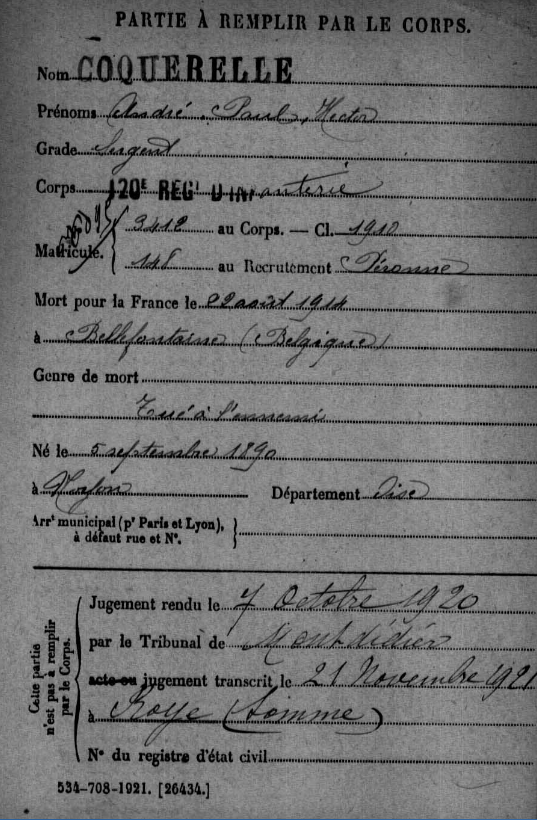 PARTIE À REMPLIR PAR LE CORPS.
Nom COQUERELLE
Prénoms André, Paul, Hector
Grade Sergent
Corps 120E REGt D'INFanterie
3412 au Corps. — Cl. 1910
Matricule.
148 au Recrutement Péronne
Mort pour la France le 22 août 1914
à Bellefontaine (Belgique)
Genre de mort
Tué à l'ennemi
Né le 5 septembre 1890
à Noyon Département Oise
Arrt municipal (pr Paris et Lyon),
à défaut rue et No.
Cette partie
n'est pas à remplir
par le Corps.
Jugement rendu le 7 Octobre 1920
par le Tribunal de Montdidier
acte ou jugement transcrit le 21 Novembre 1921
à Roye (Somme)
No du registre d'état civil
534-708-1921. [26434.]